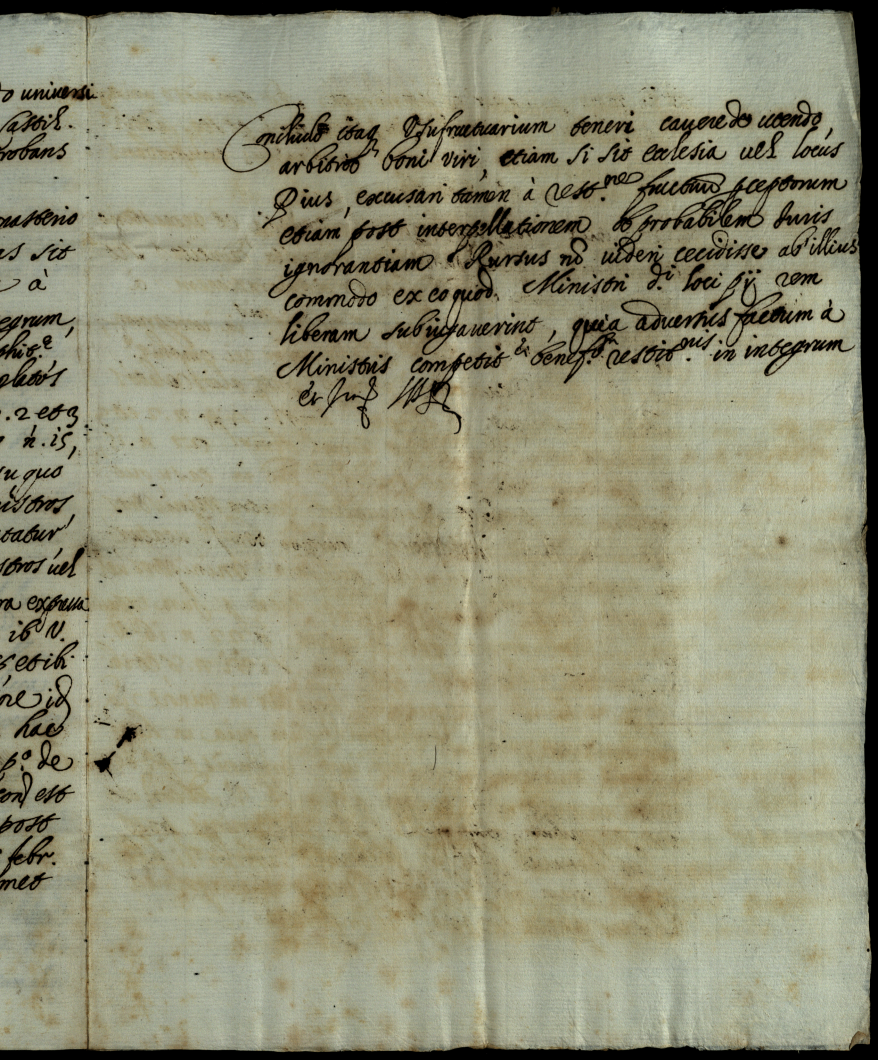 o universi
Castil.
probans
nasterio
as sit
à
egrum,
.2 et 3
n. 15,
su quo
nistros
tatur
stros uel
ra expressa
ib V.
et ibi
ore id
hac
p.º de
est
post
febr.
met
Concludo itaq Usufructuarium teneri cauere de utendo
arbitrio boni viri, etiam si sit ecclesia uel locus
Pius, excusari tamen à rest.ne fructuū pceptorum
etiam post interpellationem ob probabilem Iuris
ignorantiam. Rursus nō uideri cecidisse ab illius
commodo ex eo quod Ministri d.i loci pij rem
liberam subiugauerint, quia aduersus factum à
Ministris competit benef.m restit.nis in integrum